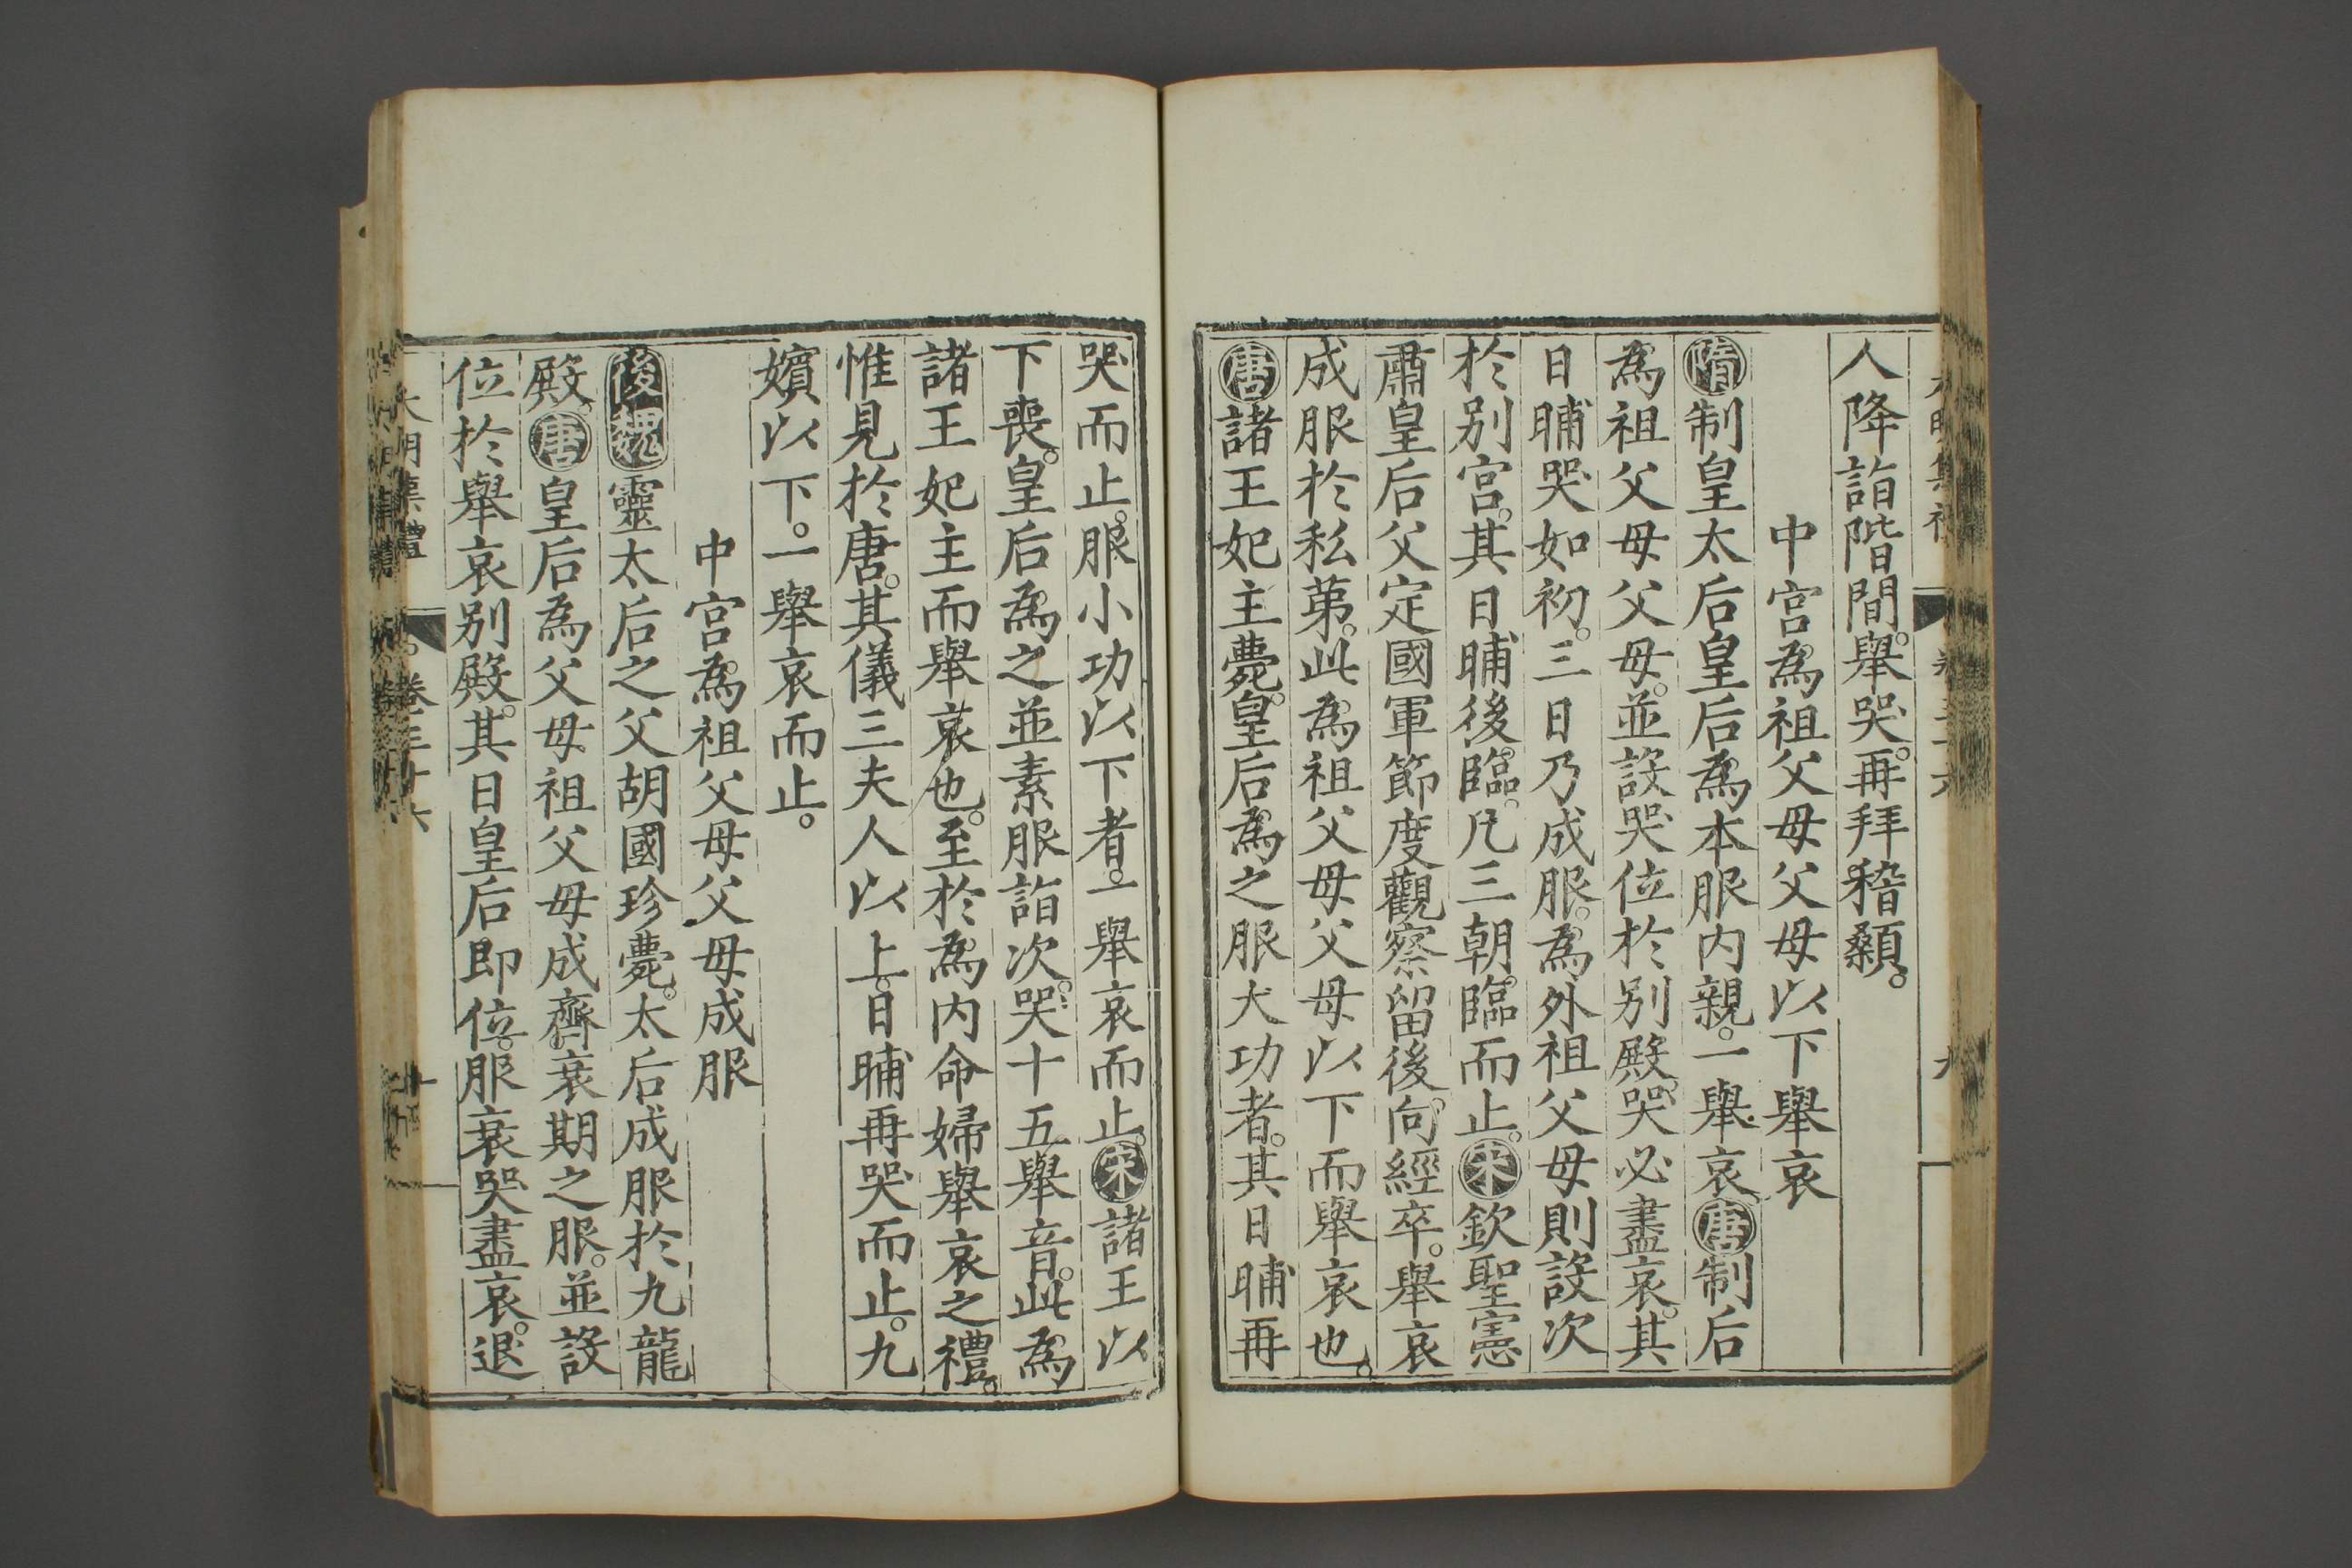 人降詣階間。舉哭。再拜稽顙。
中宮為祖父母父母以下舉哀
隋制皇太后皇后為本服內親。一舉哀唐制后
為祖父母父母。並設哭位於別殿。哭必盡哀。其
日晡哭如初。三日乃成服。為外祖父母則設次
於別宮。其日晡後。臨。凡三朝。臨而止。宋欽聖憲
肅皇后父定國軍節度觀察留後。向經卒。舉哀
成服於私第。此為祖父母父母以下而舉哀也。
唐諸王妃主薨。皇后為之服大功者。其日晡再
哭而止。服小功以下者。一舉哀而止。宋諸王以
下喪。皇后為之並素服詣次。哭十五舉音。此為
諸王妃主而舉哀也。至於為內命婦舉哀之禮。
惟見於唐。其儀三夫人以上。日晡再哭而止。九
嬪以下。一舉哀而止。
中宮為祖父母父母成服
後魏靈太后之父胡國珍薨。太后成服於九龍
殿。唐皇后為父母祖父母成齊衰期之服。並設
位於舉哀別殿。其日皇后即位。服衰哭盡哀。退
大明集禮 卷三十六